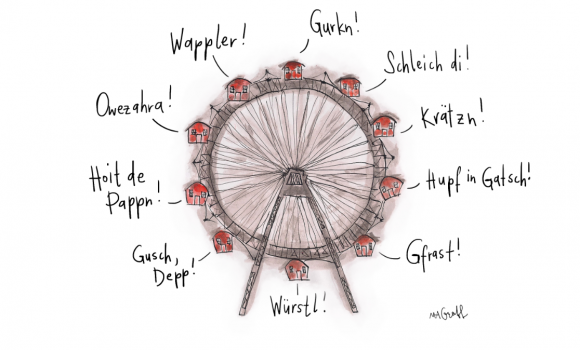 Gurkn!
Wappler!
Schleich di!
Owezahra!
Krätzn!
Hoit de
Pappn!
Hupf in Gatsch!
Gusch,
Depp!
Gfrast!
Würstl!